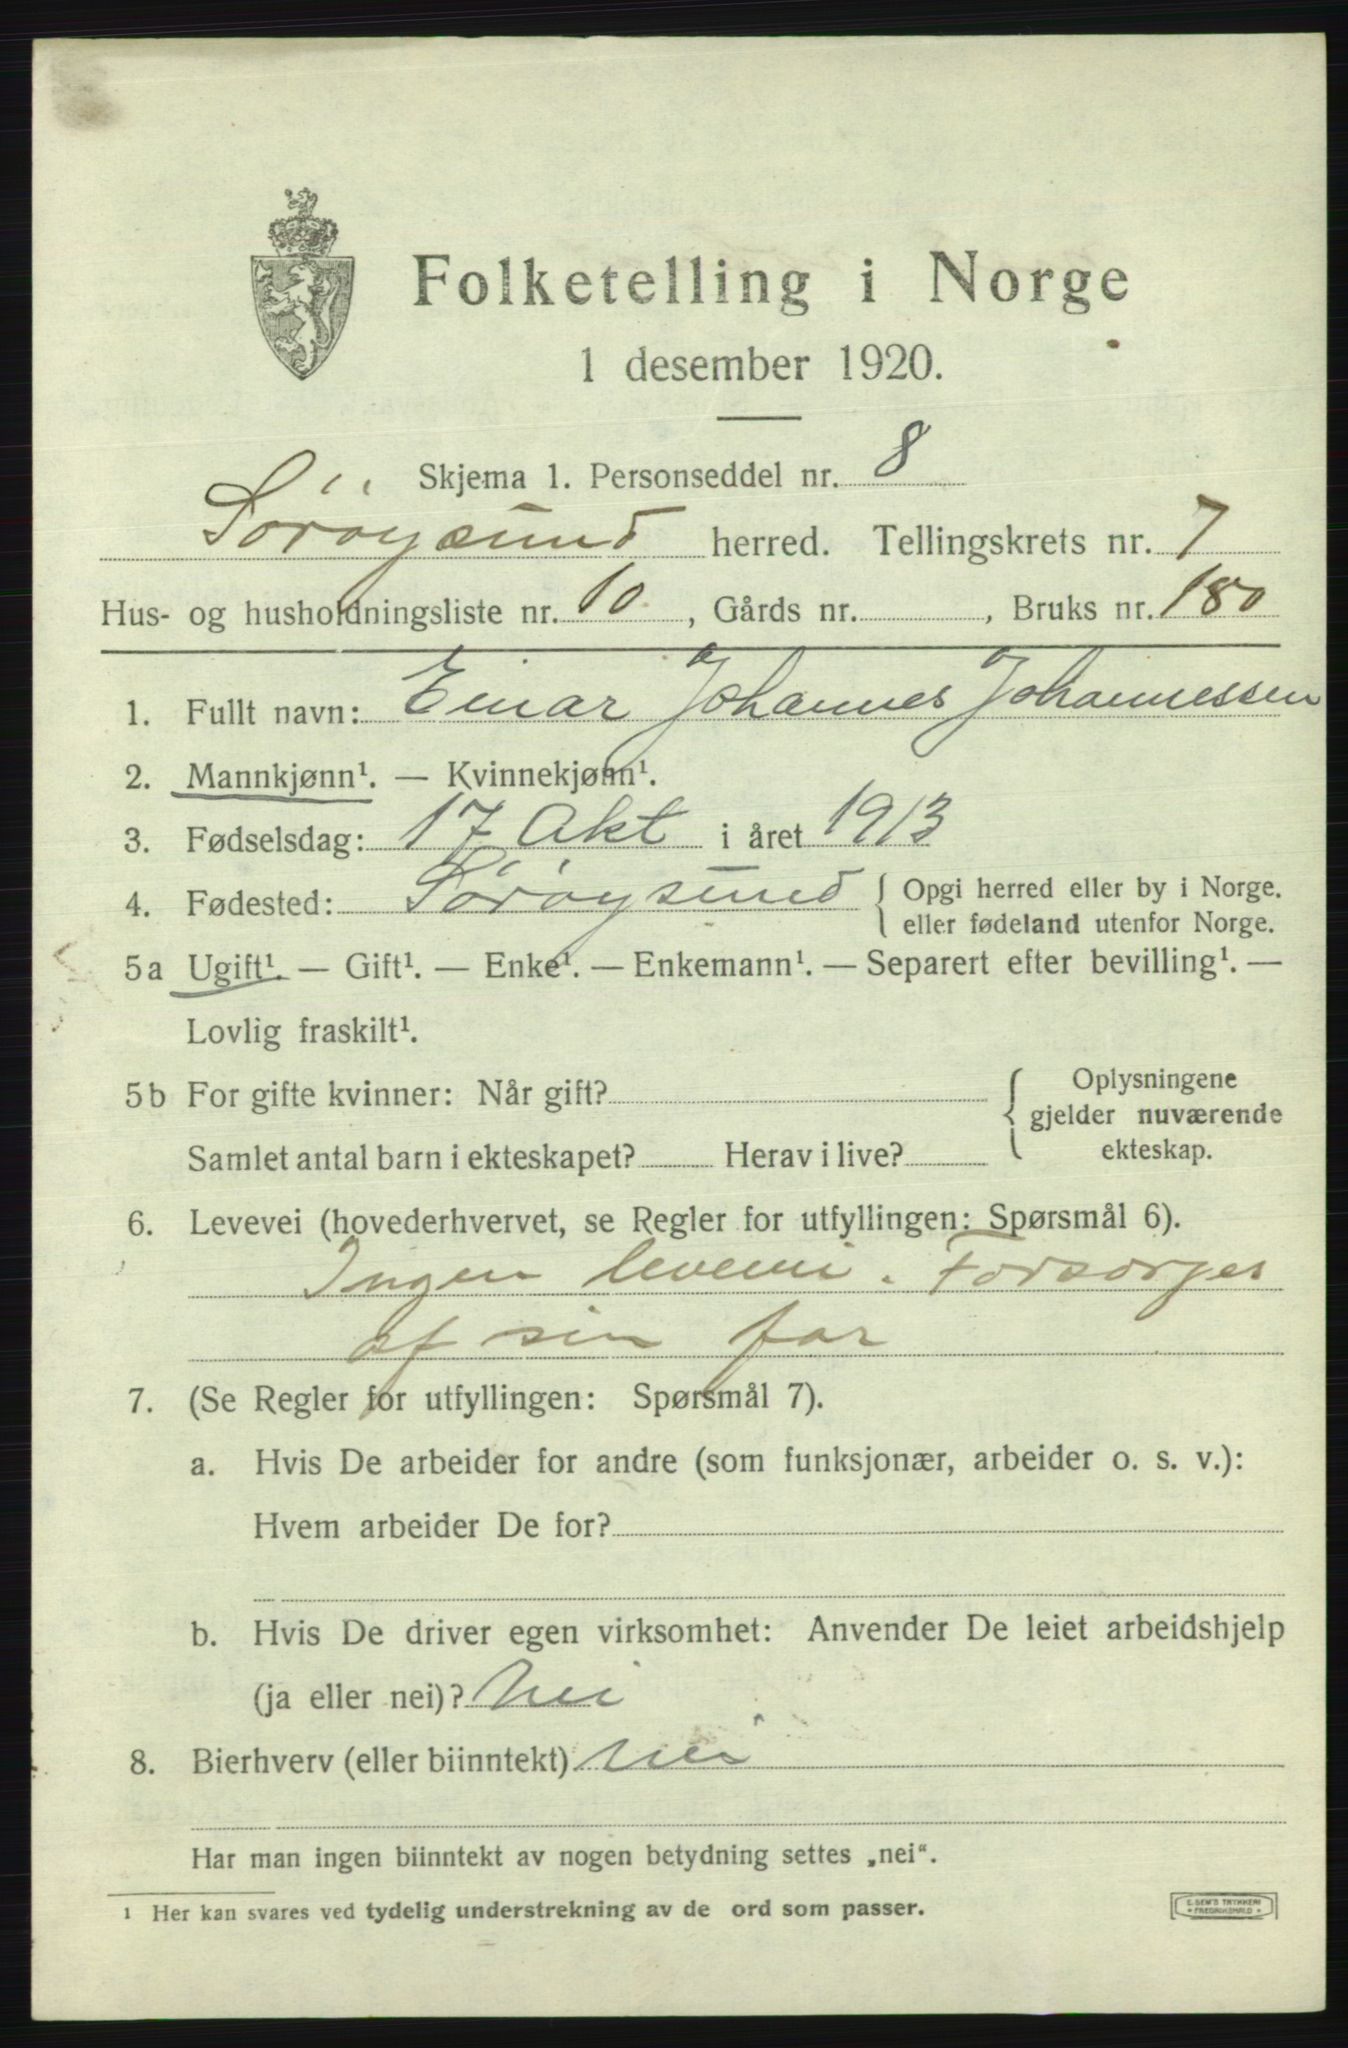 Folketelling i Norge
1 desember 1920.
Skjema 1. Personseddel nr. 8
Sørøysund herred. Tellingskrets nr. 7
Hus- og husholdningsliste nr. 10, Gårds nr. , Bruks nr. 180
1. Fullt navn: Einar Johannes Johannessen
2. Mannkjønn¹. — Kvinnekjønn¹.
3. Fødselsdag: 17 Okt i året 1913
4. Fødested: Sørøysund { Opgi herred eller by i Norge.
eller fødeland utenfor Norge.
5a Ugift¹. — Gift¹. — Enke¹. — Enkemann¹. — Separert efter bevilling¹. —
Lovlig fraskilt¹.
5b For gifte kvinner: Når gift? { Oplysningene
gjelder nuværende
ekteskap.
Samlet antal barn i ekteskapet? Herav i live?
6. Levevei (hovederhvervet, se Regler for utfyllingen: Spørsmål 6).
Ingen levevei. Forsørges
af sin far
7. (Se Regler for utfyllingen: Spørsmål 7).
a. Hvis De arbeider for andre (som funksjonær, arbeider o. s. v.):
Hvem arbeider De for?
b. Hvis De driver egen virksomhet: Anvender De leiet arbeidshjelp
(ja eller nei)? Nei
8. Bierhverv (eller biinntekt) nei
Har man ingen biinntekt av nogen betydning settes „nei“.
¹ Her kan svares ved tydelig understrekning av de ord som passer.
E. SEM'S TRYKKERI
FREDRIKSHALD